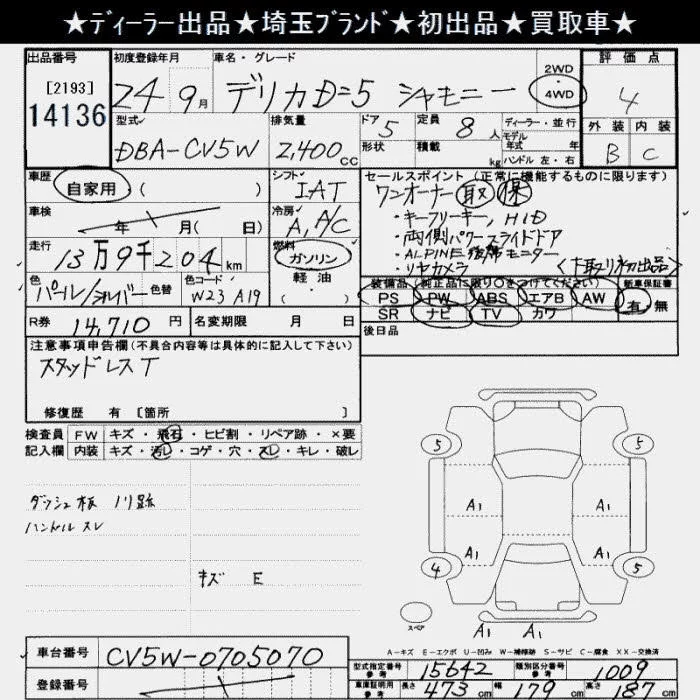 ★ディーラー出品★埼玉ブランド★初出品★買取車★
出品番号 初度登録年月 車名・グレード 2WD・4WD 評価点
[2193] 24 9月 デリカD=5 シャモニー 4
14136 型式 排気量 ドア 5 定員 8人 ディーラー・並行 外装 内装
DBA-CV5W 2,400cc 形状 積載 kg モデル年式 年式 B C
ハンドル 左・右
車歴 シフト セールスポイント(正常に機能するものに限ります)
自家用 ( ) IAT ワンオーナー 取 保
車検 年 月( 日) 冷房 A,A/C ・キーフリーキー, HID
・両側パワースライドドア
走行 13万9千204km 燃料 ガソリン ・ALPINE後席モニター
軽油 ・リヤカメラ <下取り初出品>
( ・ )
色 パール/シルバー 色替 色コード W23 A19 装備品(純正品に限り○をつけてください) 新車保証書
PS PW ABS エアB AW 有 無
R券 14,710円 名変期限 月 日 SR ナビ TV カワ
後日品
注意事項申告欄(不具合内容等は具体的に記入して下さい)
スタッドレスT
修復歴 有 [箇所 ]
検査員 FW キズ・飛石・ヒビ割・リペア跡・×要
記入欄 内装 キズ・汚レ・コゲ・穴・スレ・キレ・破レ
5 5
ダッシュ板 ノリ跡 A1 A1
ハンドル スレ
A1 A1
キズ E 4 5
スペア
A1 A1
A-キズ E-エクボ U-凹み W-補修跡 S-サビ C-腐食 XX-交換済
車台番号 CV5W-0705070 型式指定番号 参考 15642 類別区分番号 参考 1009
登録番号 車庫証明用 参考 長さ 473cm 幅 179cm 高さ 187cm